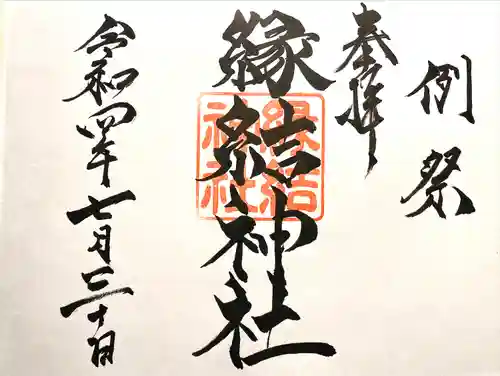 例祭
奉拝
縁結神社
縁結
神社
令和四年七月三十日